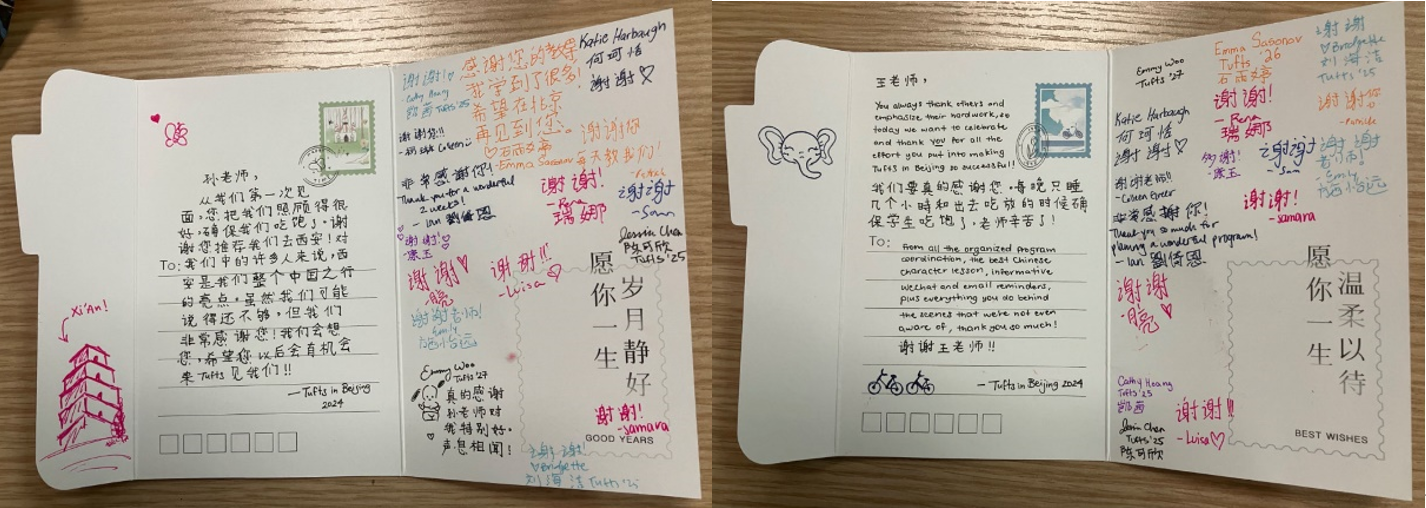 孙老师，
从我们第一次见
面，您把我们照顾得很
好，确保我们吃饱了。谢
谢您推荐我们去西安！对
To: 我们中的许多人来说，西
安是我们整个中国之行
的亮点。虽然我们可能
说得还不够，但我们
非常感谢您！我们会想
您，希望您以后会有机会
来Tufts见我们！！
— Tufts in Beijing
2024
Xi'An!
谢谢！♡
- Cathy Heang
凯茜 Tufts '25
感谢您的教导
我学到了很多！
希望在北京
再见到您。
♡石雨婷
- Emma Sasonov
Katie Harbaugh
何珂恬
谢谢♡
谢谢您!!
非常感谢你！
Thank you for a wonderful
2 weeks!
- Ian 劉倚恩
谢谢你
每天教我们！
谢谢！
- Rena
瑞娜
谢谢
- Sam
谢谢！
- 康玉
Jessin Chen
陈可欣
Tufts '25
谢谢♡
- 晓
谢谢!!
- Luisa ♡
谢谢老师！
Emily
骆怡远
Emmy Woo
Tufts '27
真的感谢
孙老师对
我特别好。
声息相闻！
愿你一生
岁月静好
谢谢！
- Samara
GOOD YEARS
谢谢！
♡ Bridgette
刘海洁 Tufts '25
王老师，
You always thank others and
emphasize their hardwork, so
today we want to celebrate
and thank you for all the
effort you put into making
Tufts in Beijing so successful!!
我们要真的感谢您。每晚只睡
几个小时和出去吃放的时候确
保学生吃饱了，老师辛苦了！
To: From all the organized program
coordination, the best Chinese
character lesson, informative
wechat and email reminders,
plus everything you do behind
the scenes that we're not even
aware of, thank you so much!
谢谢王老师!!
— Tufts in Beijing 2024
Emmy Woo
Tufts '27
Emma Sasonov
Tufts '26
石雨婷
谢谢
♡ Bridgette
刘海洁
Tufts '25
谢谢！
- Rena
瑞娜
谢谢你
Katie Harbaugh
何珂恬
谢谢♡
谢谢！
康玉
谢谢
- Sam
谢谢
老师！
- Emily
骆怡远
谢谢老师!!
谢谢！
- Samara
非常感谢你！
Thank you so much for
planning a wonderful program!
- Ian 劉倚恩
谢谢
- 晓♡
愿你一生
温柔以待
Cathy Heang
Tufts '25
凯茜
谢谢!!
- Luisa♡
Jessin Chen
Tufts '25
陈可欣
BEST WISHES